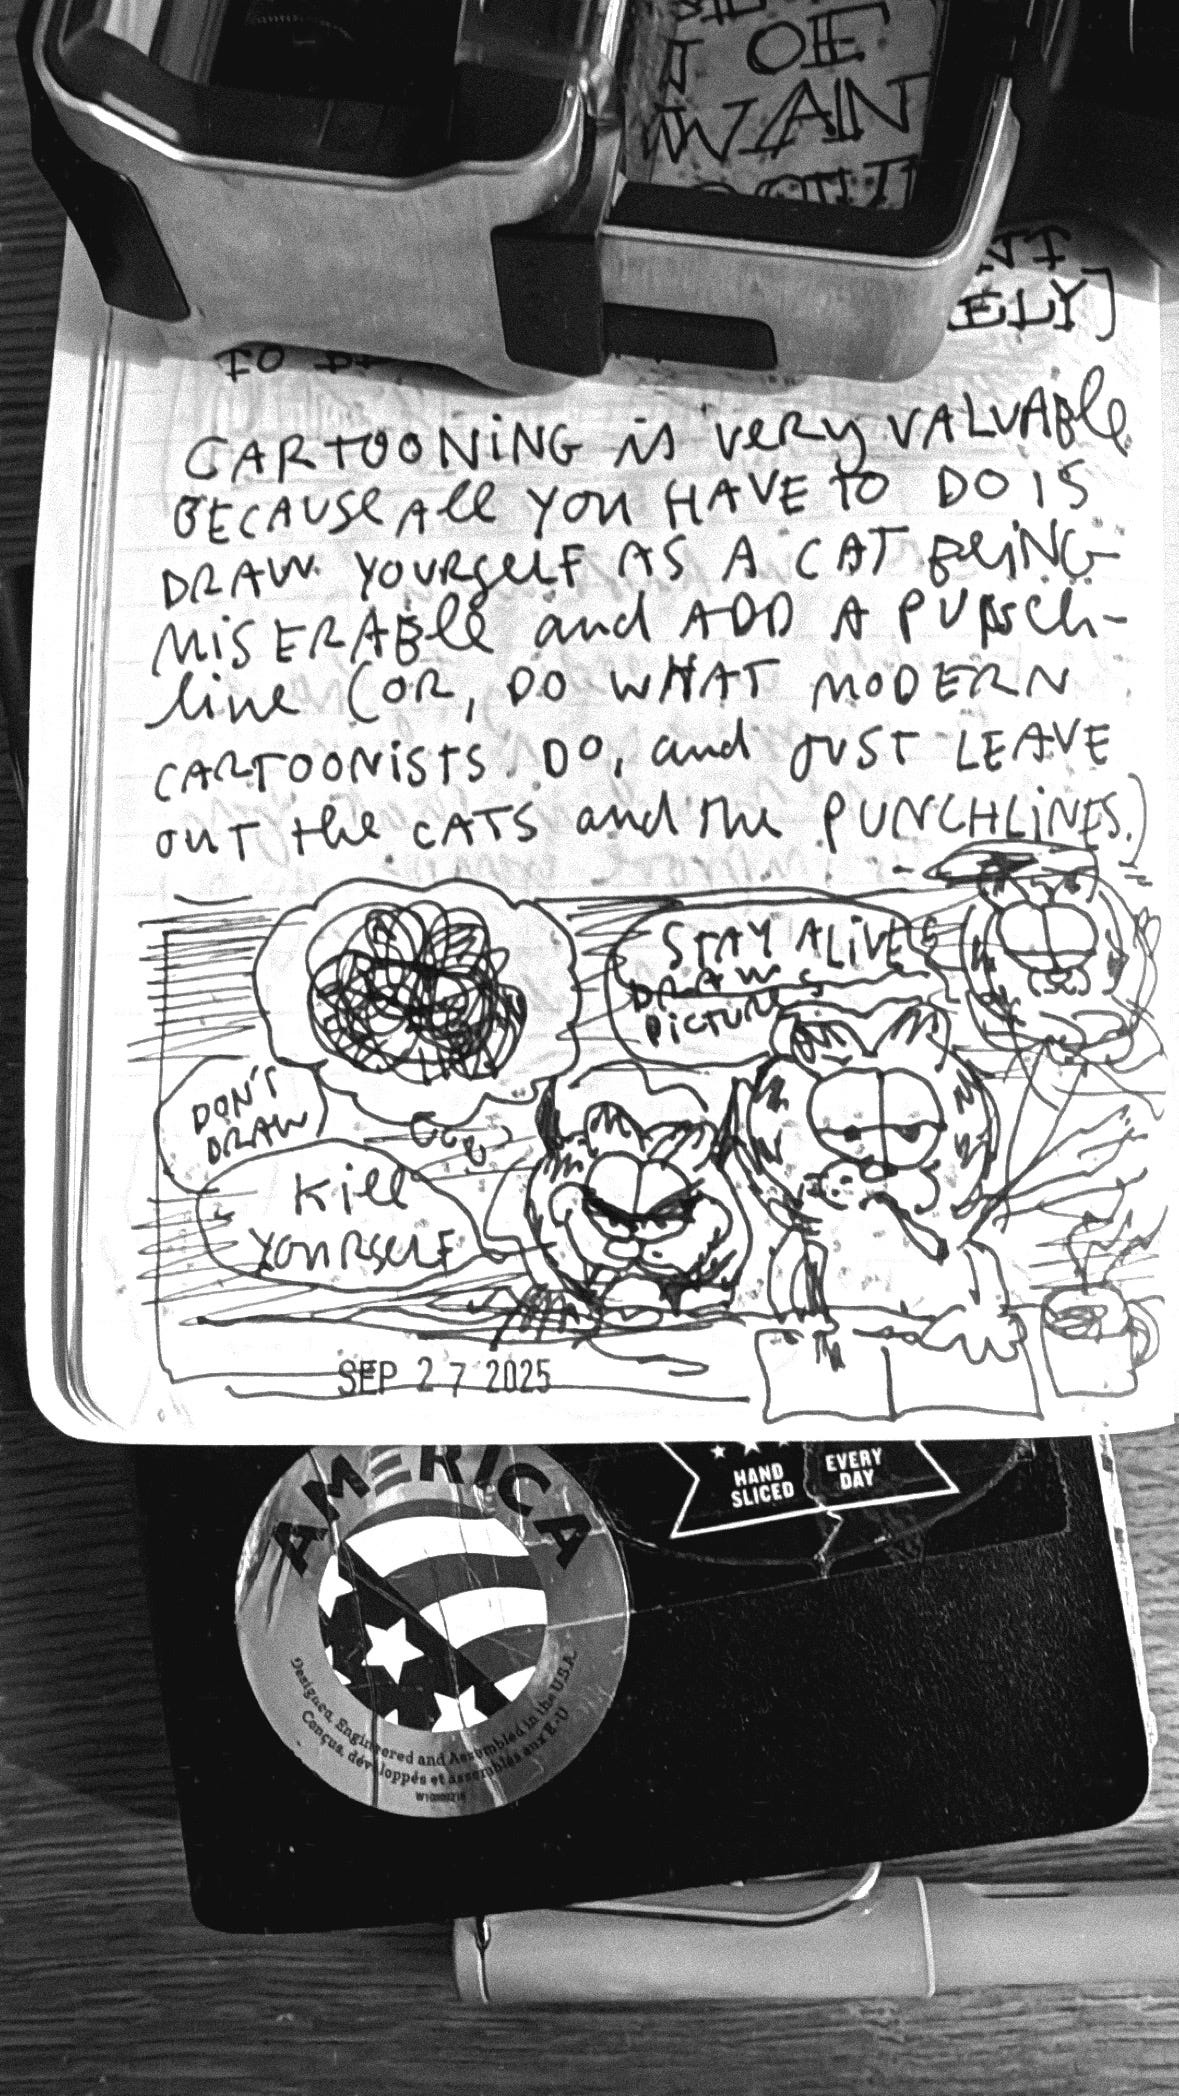 I OF
WAIN
ELY]
TO
CARTOONING is very VALUABle
BECAUSE All YOU HAVE TO DO IS
DRAW YOURSELF AS A CAT BEING
MISERABLE and ADD A PUNch-
line (OR, DO WHAT MODERN
CARTOONISTS DO, and JUST LEAVE
OUT the CATS and the PUNCHLINES.)
STAY ALIVE
DRAW
PICTURES
DON'T
DRAW
Kill
YOURSELF
SEP 27 2025
HAND
SLICED
EVERY
DAY
AMERICA
Designed, Engineered and Assembled in the U.S.A.
Conçus, développés et assemblés aux É.-U